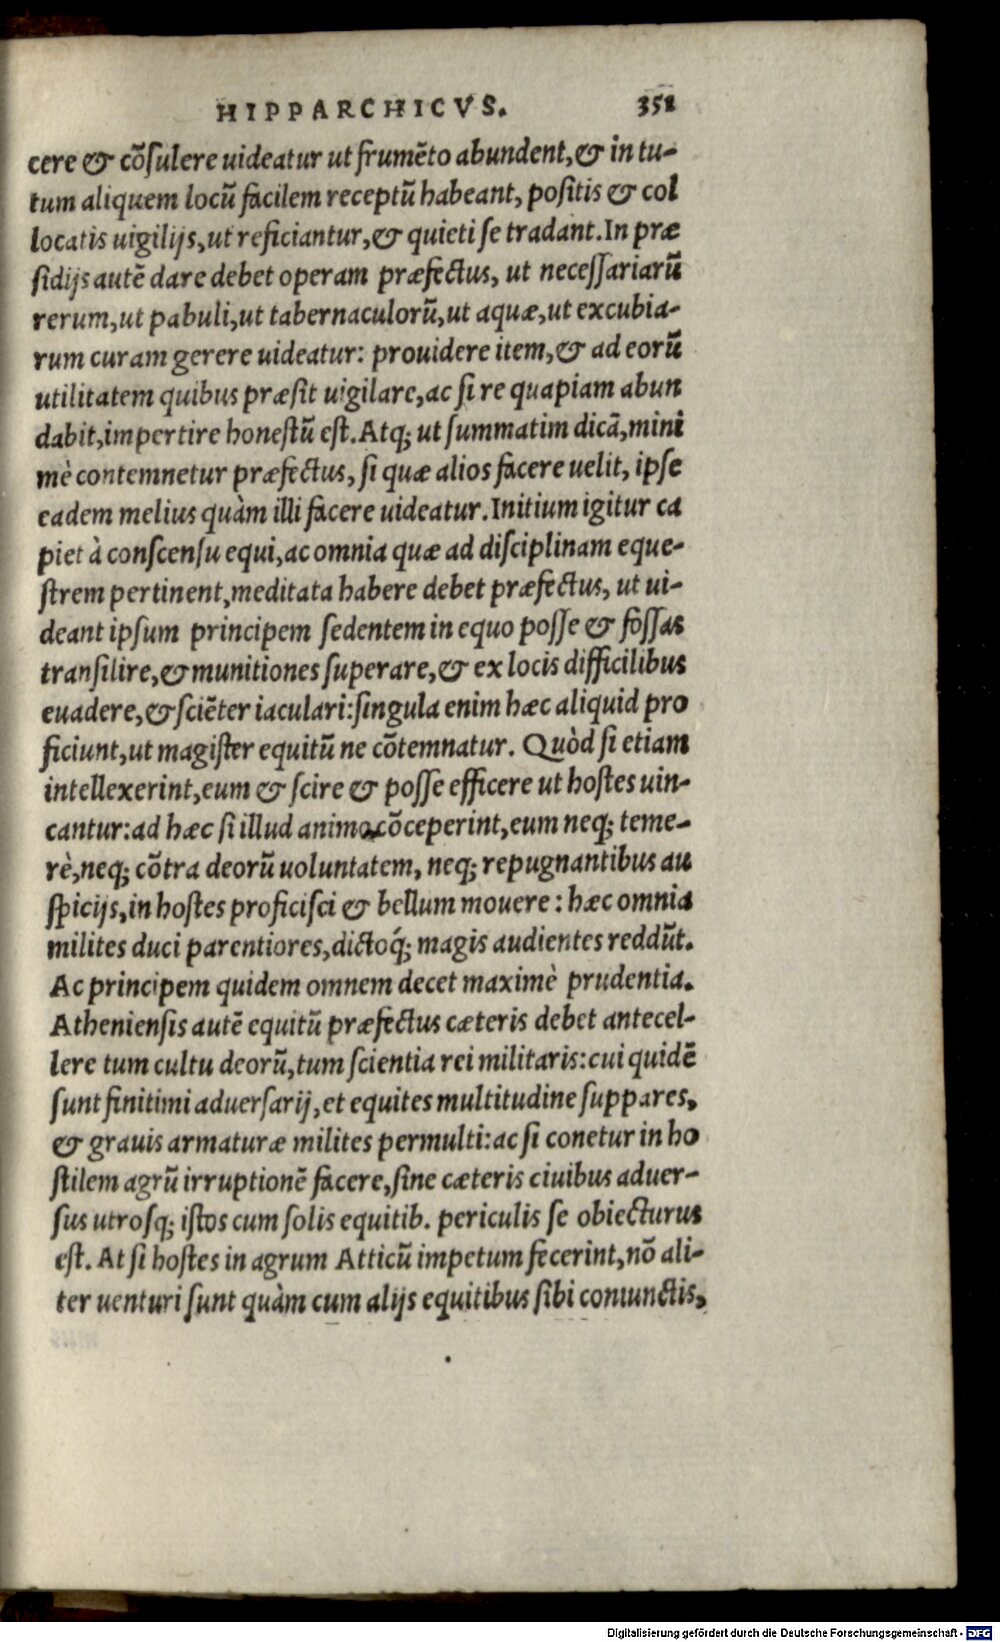 HIPPARCHICVS. 351
cere & cõsulere uideatur ut frumẽto abundent, & in tu-
tum aliquem locũ facilem receptũ habeant, positis & col
locatis uigilijs, ut reficiantur, & quieti se tradant. In præ
sidijs autẽ dare debet operam præfectus, ut necessariarũ
rerum, ut pabuli, ut tabernaculorũ, ut aquæ, ut excubia-
rum curam gerere uideatur: prouidere item, & ad eorũ
utilitatem quibus præsit uigilare, ac si re quapiam abun
dabit, impertire honestũ est. Atq; ut summatim dicã, mini
mè contemnetur præfectus, si quæ alios facere uelit, ipse
eadem melius quàm illi facere uideatur. Initium igitur ca
piet à conscensu equi, ac omnia quæ ad disciplinam eque-
strem pertinent, meditata habere debet præfectus, ut ui-
deant ipsum principem sedentem in equo posse & fossas
transilire, & munitiones superare, & ex locis difficilibus
euadere, & sciẽter iaculari: singula enim hæc aliquid pro
ficiunt, ut magister equitũ ne cõtemnatur. Quòd si etiam
intellexerint, eum & scire & posse efficere ut hostes uin-
cantur: ad hæc si illud animo cõceperint, eum neq; teme-
rè, neq; cõtra deorũ uoluntatem, neq; repugnantibus au
spicijs, in hostes proficisci & bellum mouere: hæc omnia
milites duci parentiores, dictoq́; magis audientes reddũt.
Ac principem quidem omnem decet maximè prudentia.
Atheniensis autẽ equitũ præfectus cæteris debet antecel-
lere tum cultu deorũ, tum scientia rei militaris: cui quidẽ
sunt finitimi aduersarij, et equites multitudine suppares,
& grauis armaturæ milites permulti: ac si conetur in ho
stilem agrũ irruptionẽ facere, sine cæteris ciuibus aduer-
sus utrosq; istos cum solis equitib. periculis se obiecturus
est. At si hostes in agrum Atticũ impetum fecerint, nõ ali-
ter uenturi sunt quàm cum alijs equitibus sibi coniunctis,
Digitalisierung gefördert durch die Deutsche Forschungsgemeinschaft - DFG